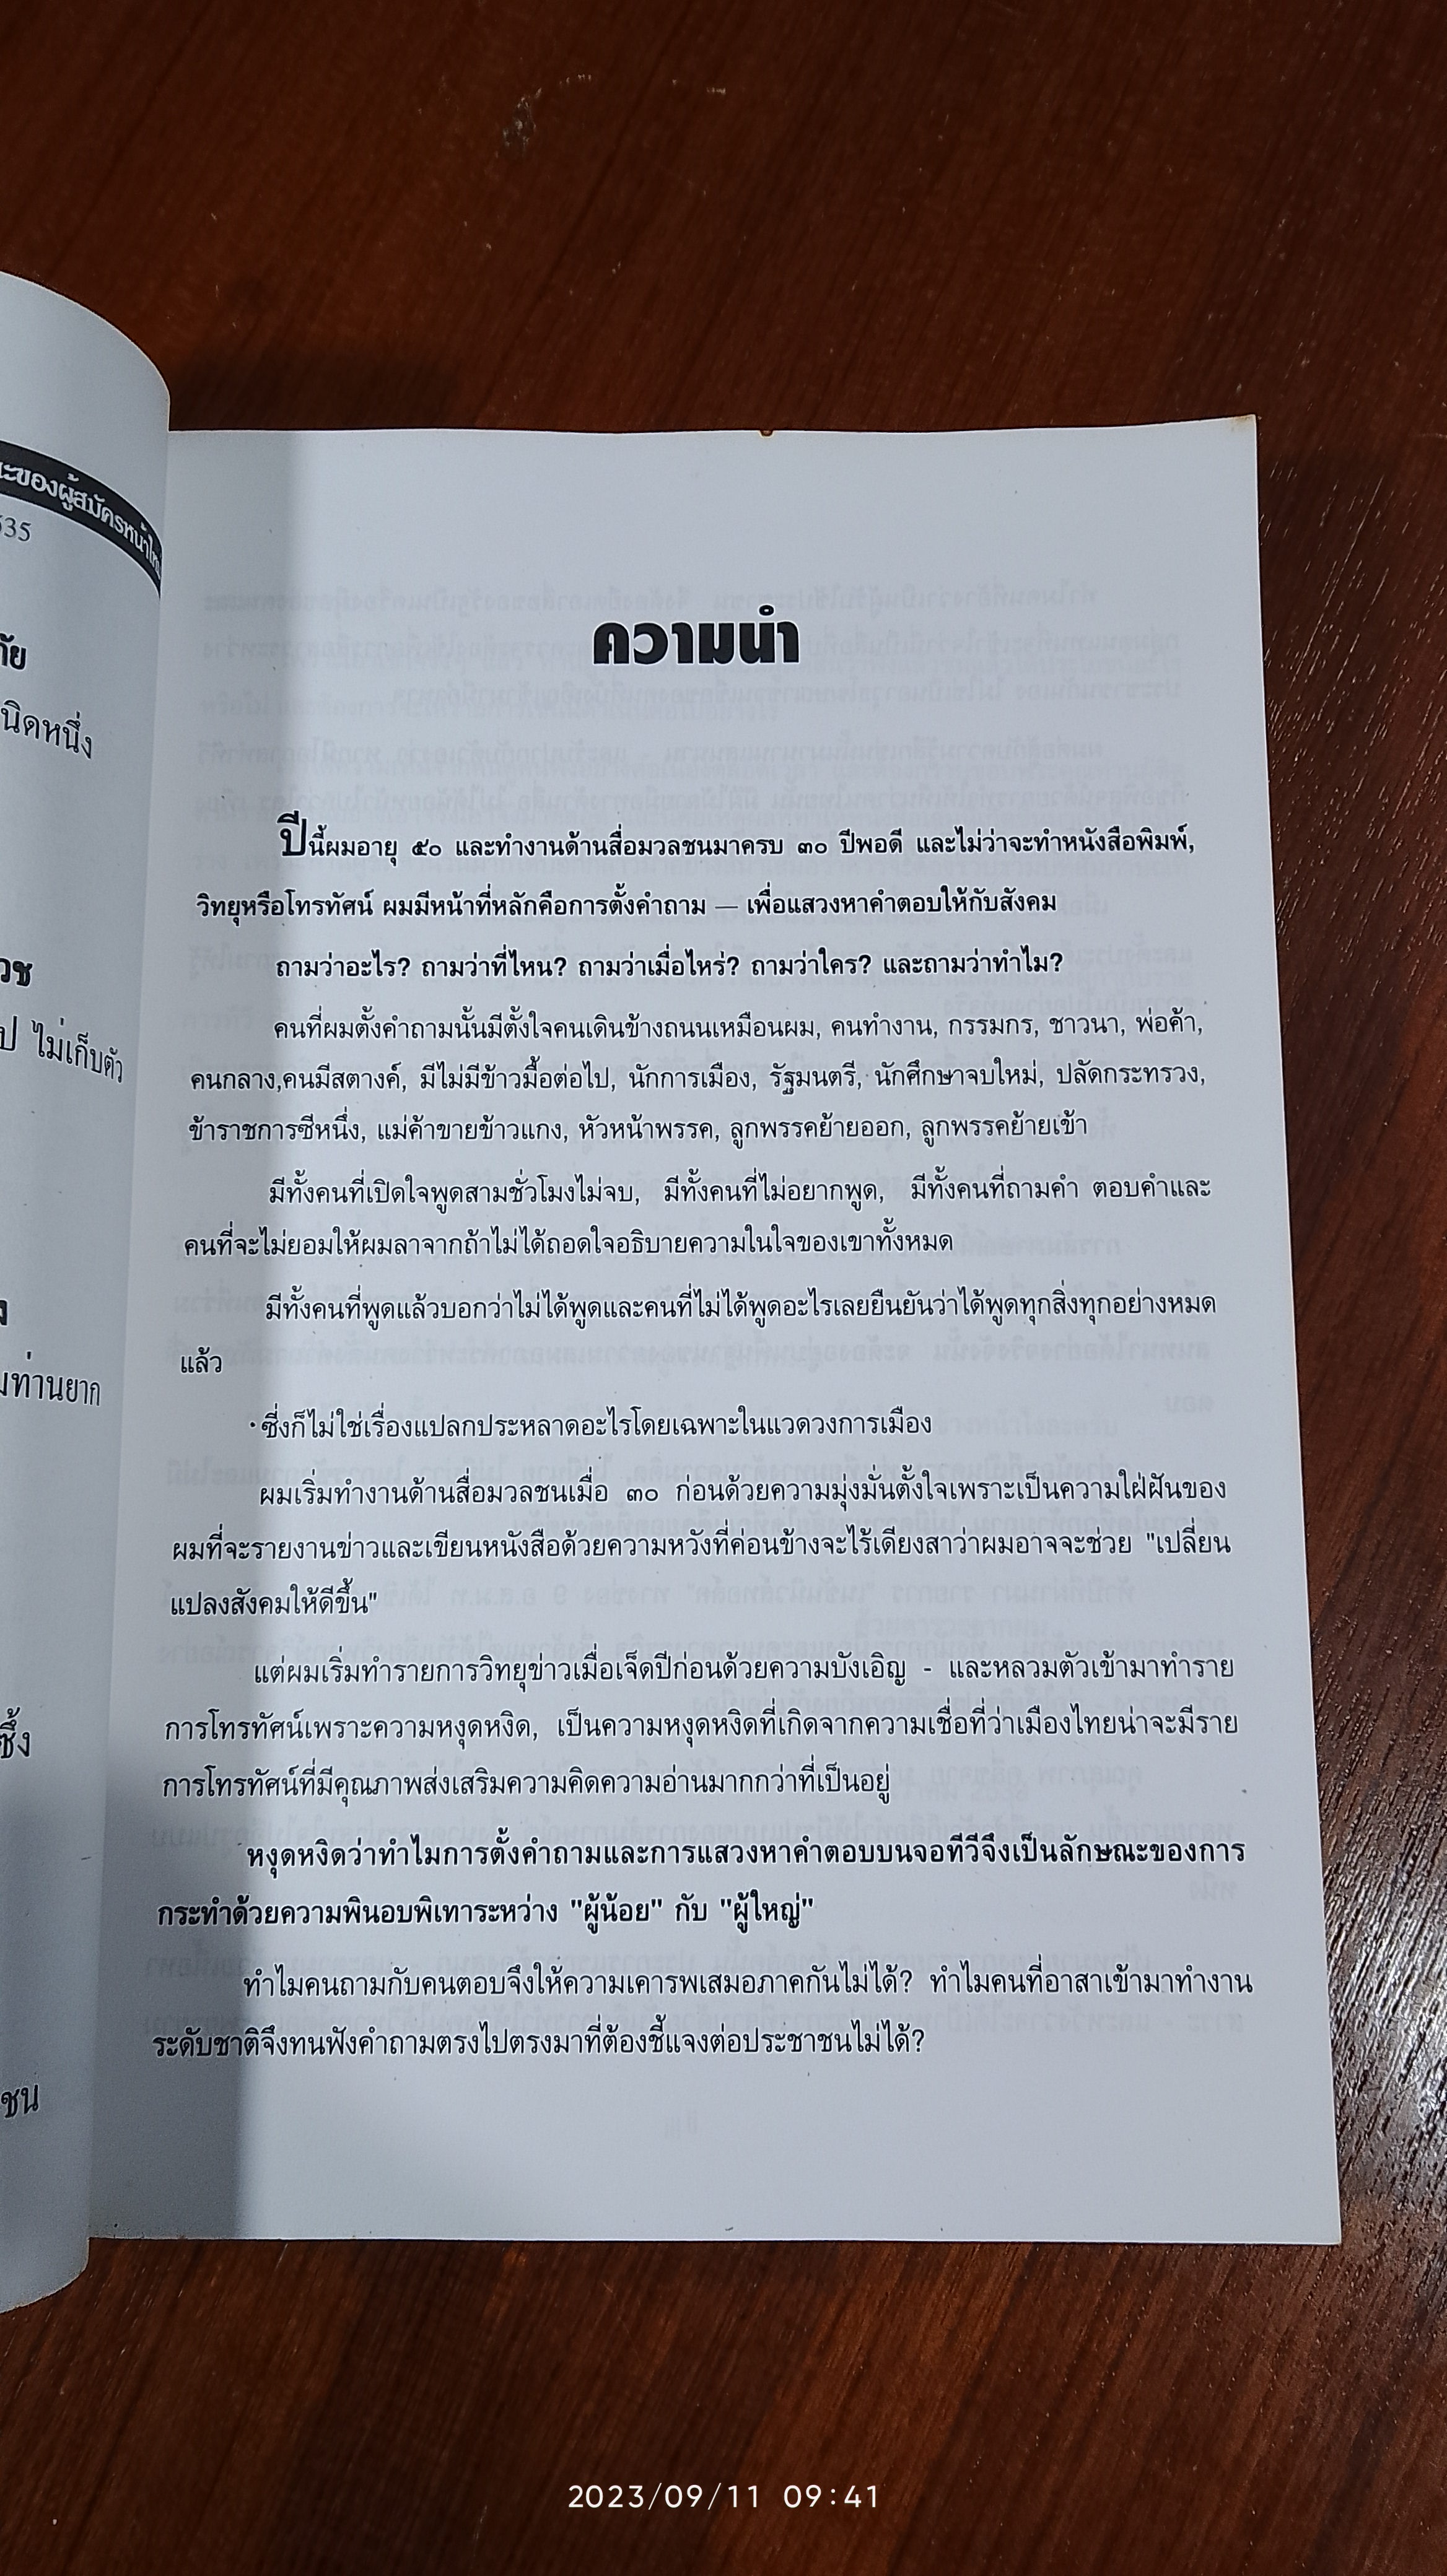 ะของผู้สมัครหน้าให
535
ภัย
นิดหนึ่ง
วช
ป ไม่เก็บตัว
ง
มท่านยาก
ซึ้ง
ชน
ความนำ
ปีนี้ผมอายุ ๕๐ และทำงานด้านสื่อมวลชนมาครบ ๓๐ ปีพอดี และไม่ว่าจะทำหนังสือพิมพ์,
วิทยุหรือโทรทัศน์ ผมมีหน้าที่หลักคือการตั้งคำถาม — เพื่อแสวงหาคำตอบให้กับสังคม
ถามว่าอะไร? ถามว่าที่ไหน? ถามว่าเมื่อไหร่? ถามว่าใคร? และถามว่าทำไม?
คนที่ผมตั้งคำถามนั้นมีตั้งใจคนเดินข้างถนนเหมือนผม, คนทำงาน, กรรมกร, ชาวนา, พ่อค้า,
คนกลาง,คนมีสตางค์, มีไม่มีข้าวมื้อต่อไป, นักการเมือง, รัฐมนตรี, นักศึกษาจบใหม่, ปลัดกระทรวง,
ข้าราชการซีหนึ่ง, แม่ค้าขายข้าวแกง, หัวหน้าพรรค, ลูกพรรคย้ายออก, ลูกพรรคย้ายเข้า
มีทั้งคนที่เปิดใจพูดสามชั่วโมงไม่จบ, มีทั้งคนที่ไม่อยากพูด, มีทั้งคนที่ถามคำ ตอบคำและ
คนที่จะไม่ยอมให้ผมลาจากถ้าไม่ได้ถอดใจอธิบายความในใจของเขาทั้งหมด
มีทั้งคนที่พูดแล้วบอกว่าไม่ได้พูดและคนที่ไม่ได้พูดอะไรเลยยืนยันว่าได้พูดทุกสิ่งทุกอย่างหมด
แล้ว
ซึ่งก็ไม่ใช่เรื่องแปลกประหลาดอะไรโดยเฉพาะในแวดวงการเมือง
ผมเริ่มทำงานด้านสื่อมวลชนเมื่อ ๓๐ ก่อนด้วยความมุ่งมั่นตั้งใจเพราะเป็นความใฝ่ฝันของ
ผมที่จะรายงานข่าวและเขียนหนังสือด้วยความหวังที่ค่อนข้างจะไร้เดียงสาว่าผมอาจจะช่วย "เปลี่ยน
แปลงสังคมให้ดีขึ้น"
แต่ผมเริ่มทำรายการวิทยุข่าวเมื่อเจ็ดปีก่อนด้วยความบังเอิญ - และหลวมตัวเข้ามาทำราย
การโทรทัศน์เพราะความหงุดหงิด, เป็นความหงุดหงิดที่เกิดจากความเชื่อที่ว่าเมืองไทยน่าจะมีราย
การโทรทัศน์ที่มีคุณภาพส่งเสริมความคิดความอ่านมากกว่าที่เป็นอยู่
หงุดหงิดว่าทำไมการตั้งคำถามและการแสวงหาคำตอบบนจอทีวีจึงเป็นลักษณะของการ
กระทำด้วยความพินอบพิเทาระหว่าง "ผู้น้อย" กับ "ผู้ใหญ่"
ทำไมคนถามกับคนตอบจึงให้ความเคารพเสมอภาคกันไม่ได้? ทำไมคนที่อาสาเข้ามาทำงาน
ระดับชาติจึงทนฟังคำถามตรงไปตรงมาที่ต้องชี้แจงต่อประชาชนไม่ได้?
2023/09/11 09:41